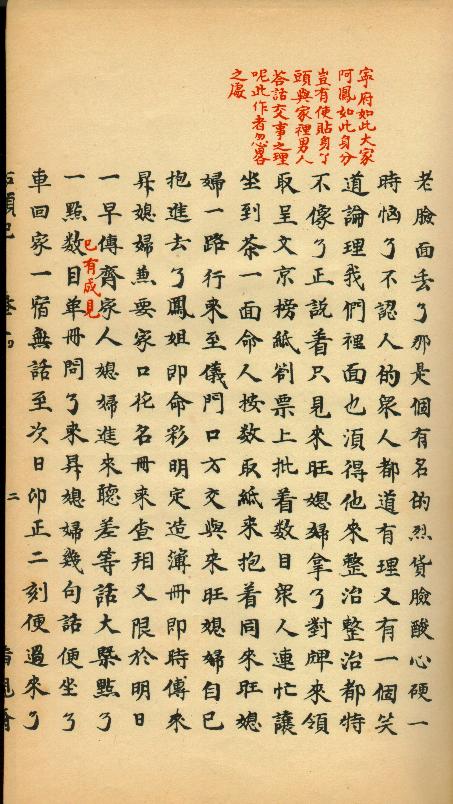 寧府如此大家
阿鳳如此身分
豈有使貼身丫
頭與家裡男人
荅話交事之理
呢此作者忽畧
之處
老臉面丢了那是個有名的烈貨臉酸心硬一
時惱了不認人的衆人都道有理又有一個笑
道論理我們裡面也須得他來整治整治都特
不像了正説着只見來旺媳婦拿了對牌來領
取呈文京榜紙劄票上批着数目衆人連忙讓
坐到茶一面命人按数取紙來抱着同來旺媳
婦一路行来至儀門口方交與来旺媳婦自已
抱進去了鳳姐即命彩明定造簿冊即時傳來
昇媳婦兼要家口花名冊來查𢰅又限於明日
一早傳齊家人媳婦進來聽差等話大槩點了
一點数目单冊問了来昇媳婦幾句話便坐了
已有成見
車回家一宿無話至次日卯正二刻便過来了
二